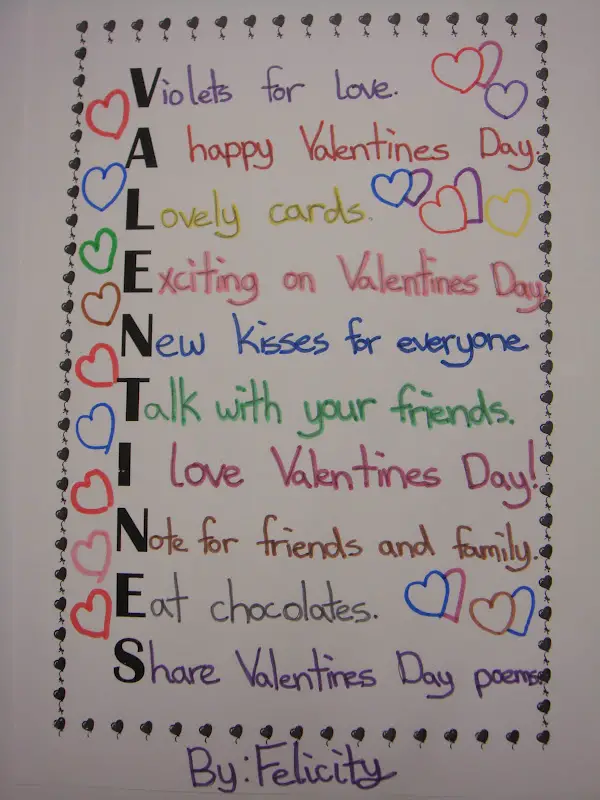 Violets for love.
A happy Valentines Day.
Lovely cards.
Exciting on Valentines Day.
New kisses for everyone.
Talk with your friends.
I love Valentines Day!
Note for friends and family.
Eat chocolates.
Share Valentines Day poems.
By: Felicity